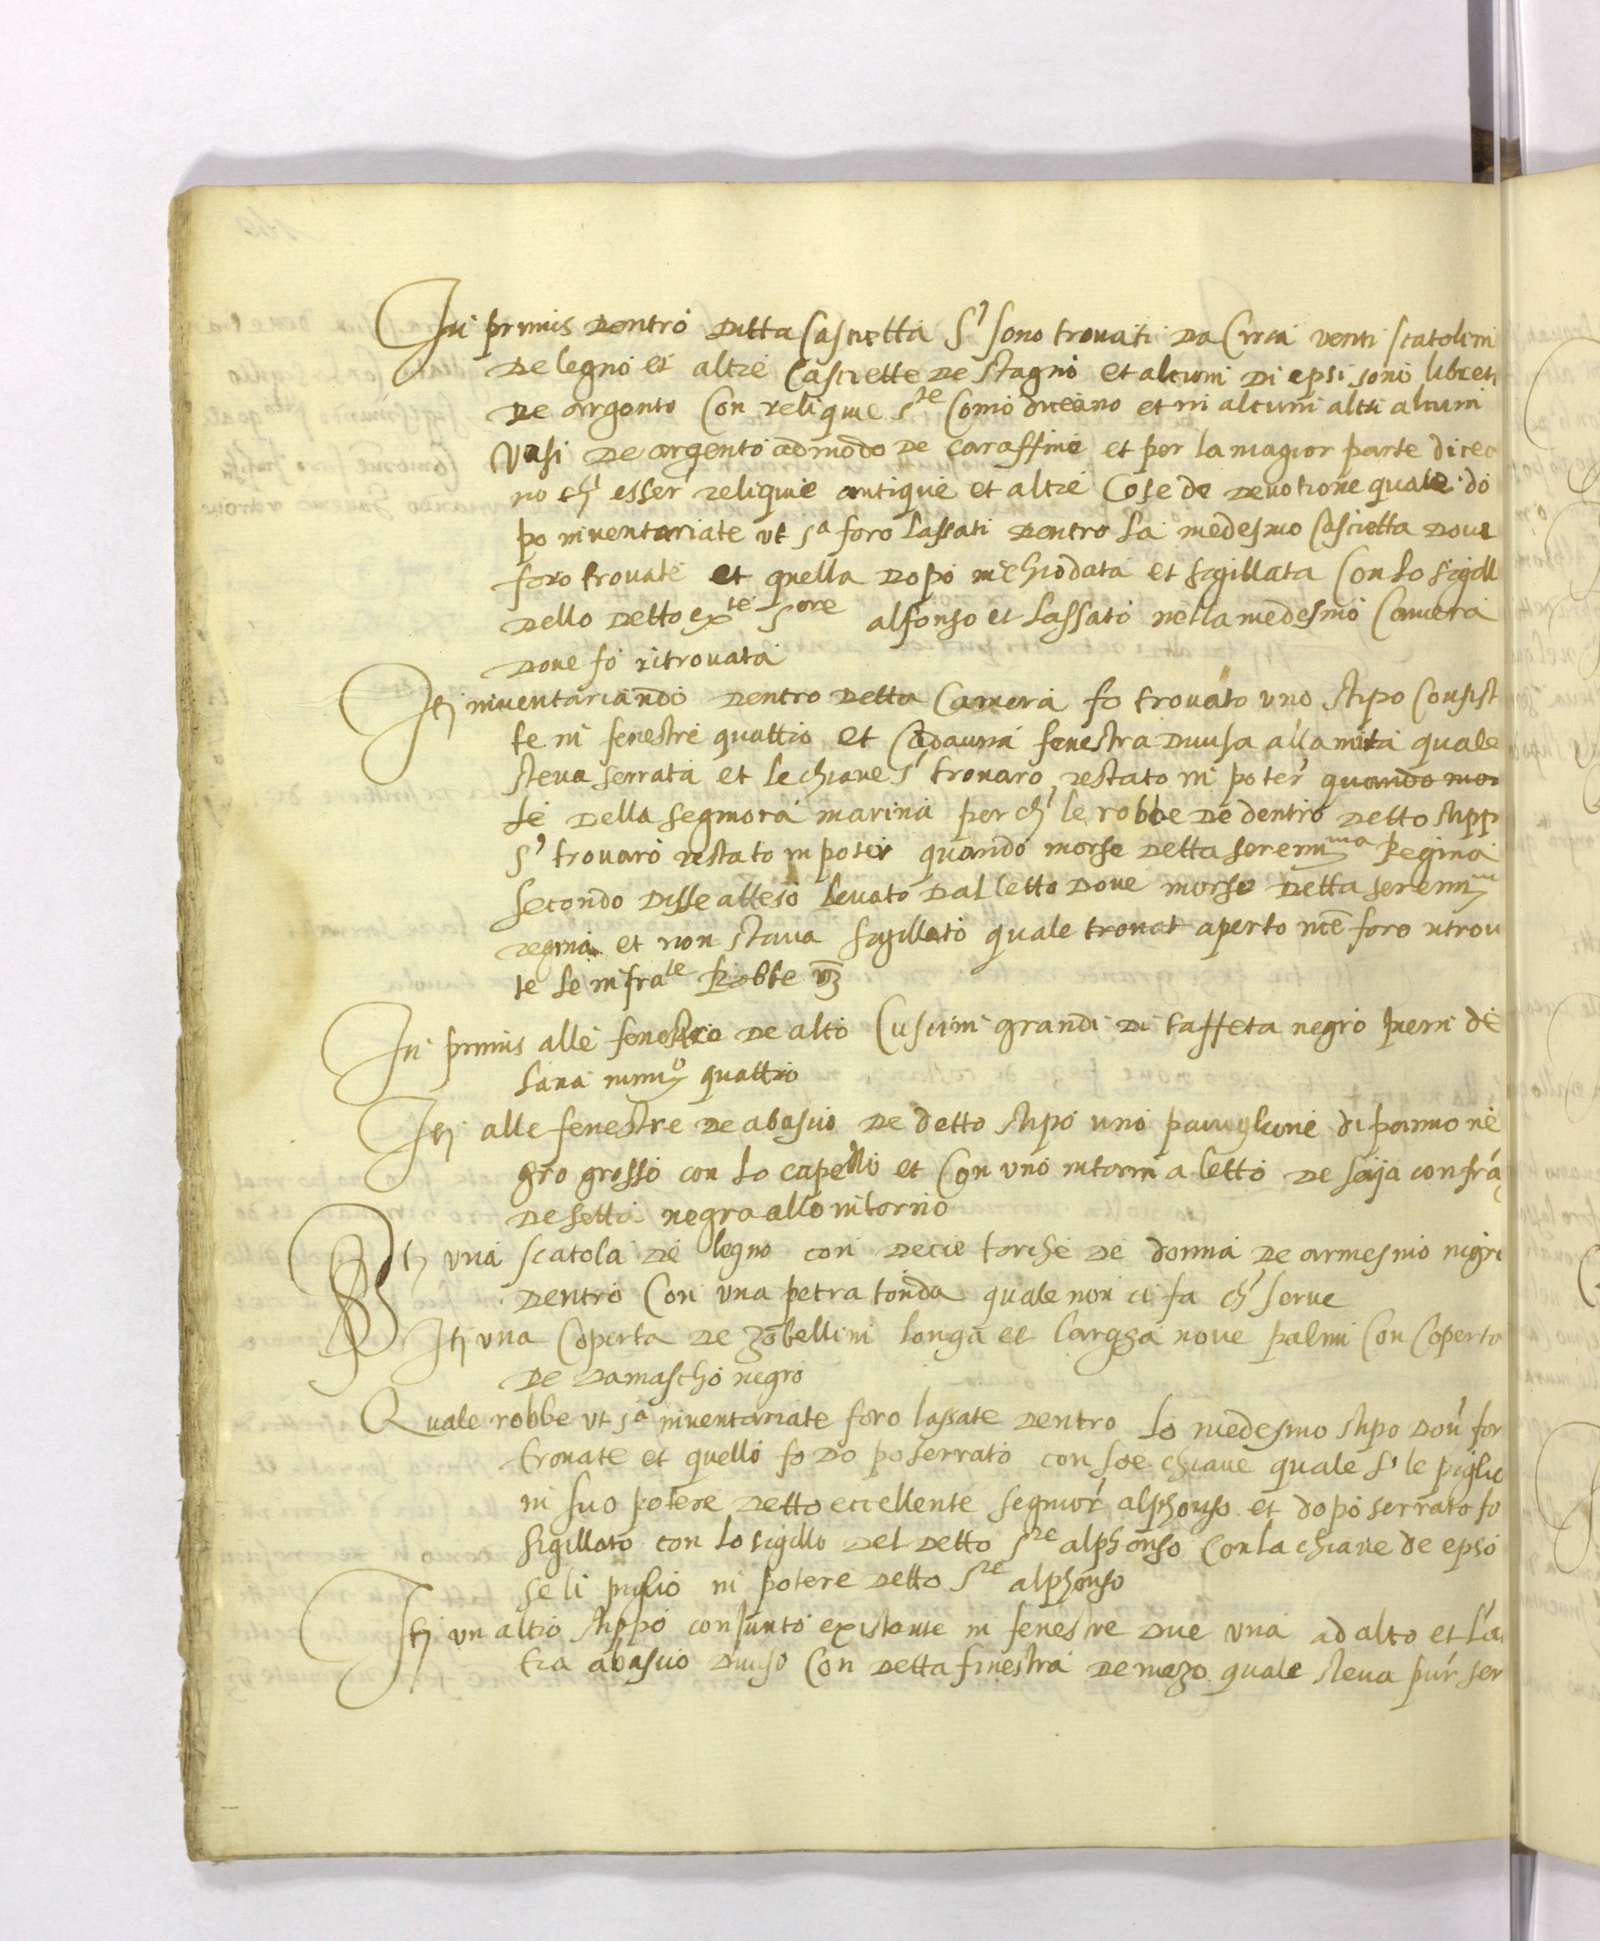 In primis dentro ditta Cascietta s' sono trovati da Circa venti scatolini
de legno et altre Casciette de stagno et alcuni di epsi sono libret
de argento Con reliquie s.te Como diceano et in alcuni altri alcuni
Vasi de argento ad modo de caraffine et per la magior parte dicea
no ch' esser' reliquie antique et altre Cose de devotione quale do
po inventariate ut s.a foro lassati dentro la medesmo Cascietta dove
foro trovate et quella dopo inchiodata et sigillata Con lo sigill
dello detto ex.te s.ore alfonso et lassato nella medesmo Camera
dove fo ritrovata
Itj inventariando dentro detta Camera fo trovato uno stipo Consist
te in fenestre quattro et Cadauna fenestra divisa alla mità quale
steva serrata et le chiave s' trovaro restato in poter' quando mor
te della segnora marina per ch' le robbe de dentro detto stipp
s' trovaro restato in poter quando morse detta seren.ma Regina
secondo disse atteso levato dal letto dove morse detta seren.m
regina et non stava sigillato quale trovat aperto nce foro ritrov
te le infra.te Robbe vz
In primis alle fenestre de alto Cuscini grandi di taffeta negro pieni de
lana num.o quattro
Itj alle fenestre de abascio de detto stipo uno paviglione di panno ne
gro grosso con lo capello et Con uno intorni a letto de saija con fra
de setta negra allo intorno
Itj una scatola de legno con decie torche de donna de armesino nigro
dentro Con una petra tonda quale non ci fa ch' serve
Itj una Coperta de zobellini longa et largga nove palmi Con Coperta
de damascho negro
Quale robbe ut s.a inventariate foro lassate dentro lo medesmo stipo dov' for
trovate et quello fo dopo serrato con soe chiave quale s' le piglio
in suo potere detto eccellente segnior' alphonso et dopo serrato fo
sigillato con lo sigillo del detto s.re alphonso Con la chiave de epso
se li piglio in potere detto s.re alphonso
Itj un altro stippo consunto existente in fenestre due una ad alto et l'a
tra abascio diviso Con detta finestra de mezo quale steva pur' ser